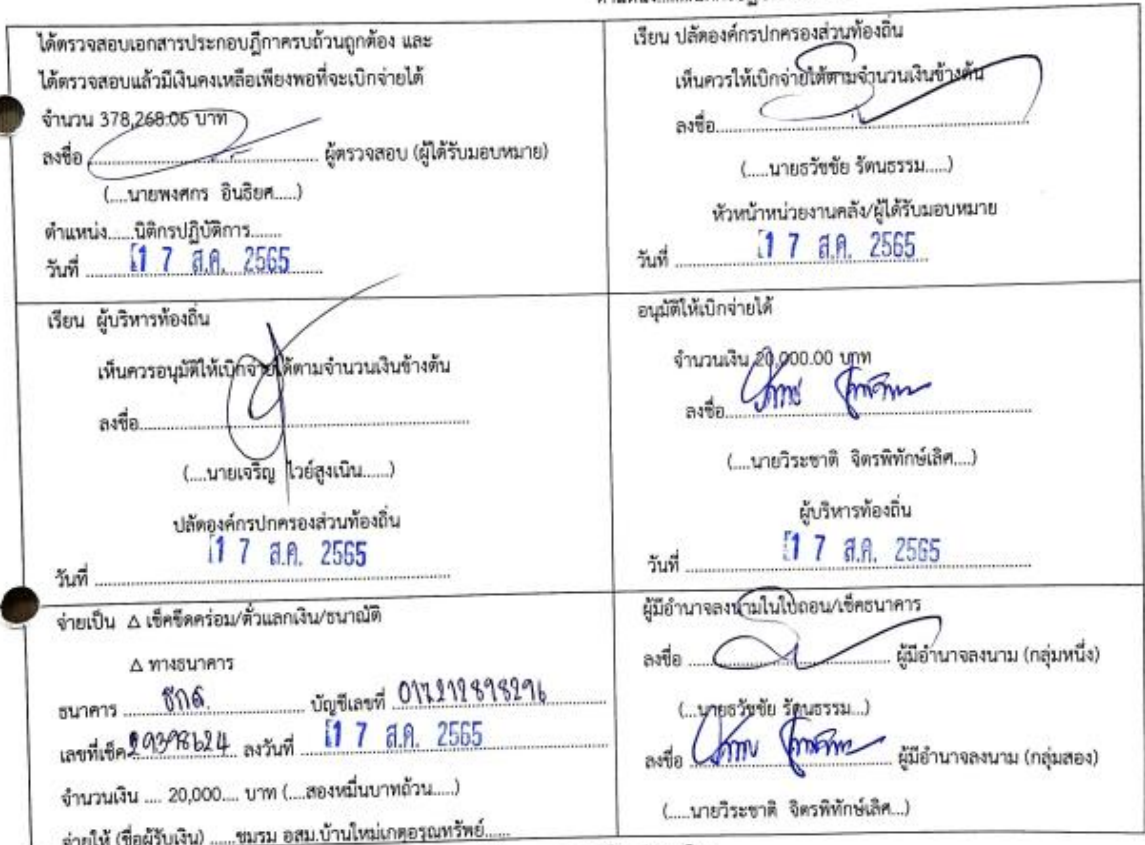 ได้ตรวจสอบเอกสารประกอบฎีกาครบถ้วนถูกต้อง และ
ได้ตรวจสอบแล้วมีเงินคงเหลือเพียงพอที่จะเบิกจ่ายได้
จำนวน 378,268.06 บาท
ลงชื่อ ........ ผู้ตรวจสอบ (ผู้ได้รับมอบหมาย)
(....นายพงศกร อินธิยศ.....)
ตำแหน่ง......นิติกรปฏิบัติการ.......
วันที่ 17 ส.ค. 2565
เรียน ปลัดองค์กรปกครองส่วนท้องถิ่น
เห็นควรให้เบิกจ่ายได้ตามจำนวนเงินข้างต้น
ลงชื่อ........
(.....นายธวัชชัย รัตนธรรม.....)
หัวหน้าหน่วยงานคลัง/ผู้ได้รับมอบหมาย
วันที่ 17 ส.ค. 2565
เรียน ผู้บริหารท้องถิ่น
เห็นควรอนุมัติให้เบิกจ่ายได้ตามจำนวนเงินข้างต้น
ลงชื่อ........
(....นายเจริญ ไวย์สูงเนิน......)
ปลัดองค์กรปกครองส่วนท้องถิ่น
17 ส.ค. 2565
วันที่ ........
อนุมัติให้เบิกจ่ายได้
จำนวนเงิน 20,000.00 บาท
ลงชื่อ........
(....นายวิระชาติ จิตรพิทักษ์เลิศ....)
ผู้บริหารท้องถิ่น
วันที่ 17 ส.ค. 2565
จ่ายเป็น Δ เช็คขีดคร่อม/ตั๋วแลกเงิน/ธนาณัติ
Δ ทางธนาคาร
ธนาคาร ธกส. บัญชีเลขที่ 017212898296
เลขที่เช็ค 29398624 ลงวันที่ 17 ส.ค. 2565
จำนวนเงิน .... 20,000.... บาท (....สองหมื่นบาทถ้วน.....)
จ่ายให้ (ชื่อผู้รับเงิน) ......ชมรม อสม.บ้านใหม่เกตุอรุณทรัพย์......
ผู้มีอำนาจลงนามในใบถอน/เช็คธนาคาร
ลงชื่อ ........ ผู้มีอำนาจลงนาม (กลุ่มหนึ่ง)
(...นายธวัชชัย รัตนธรรม...)
ลงชื่อ ........ ผู้มีอำนาจลงนาม (กลุ่มสอง)
(.....นายวิระชาติ จิตรพิทักษ์เลิศ...)